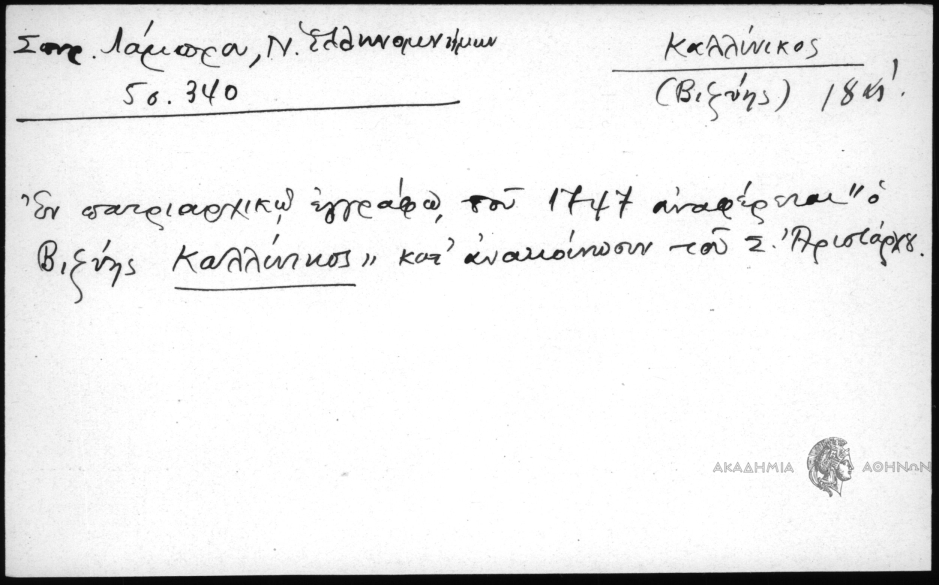 Σπυρ. Λάμπρου, Ν. Ἑλληνομνήμων
5 σ. 340
Καλλίνικος
(Βιζύης) 18
Ἐν πατριαρχικῷ ἐγγράφῳ τοῦ 1747 ἀναφέρεται "ὁ
Βιζύης Καλλίνικος" κατ' ἀνακοίνωσιν τοῦ Σ. Ἀριστάρχου.
ΑΚΑΔΗΜΙΑ ΑΘΗΝΩΝ